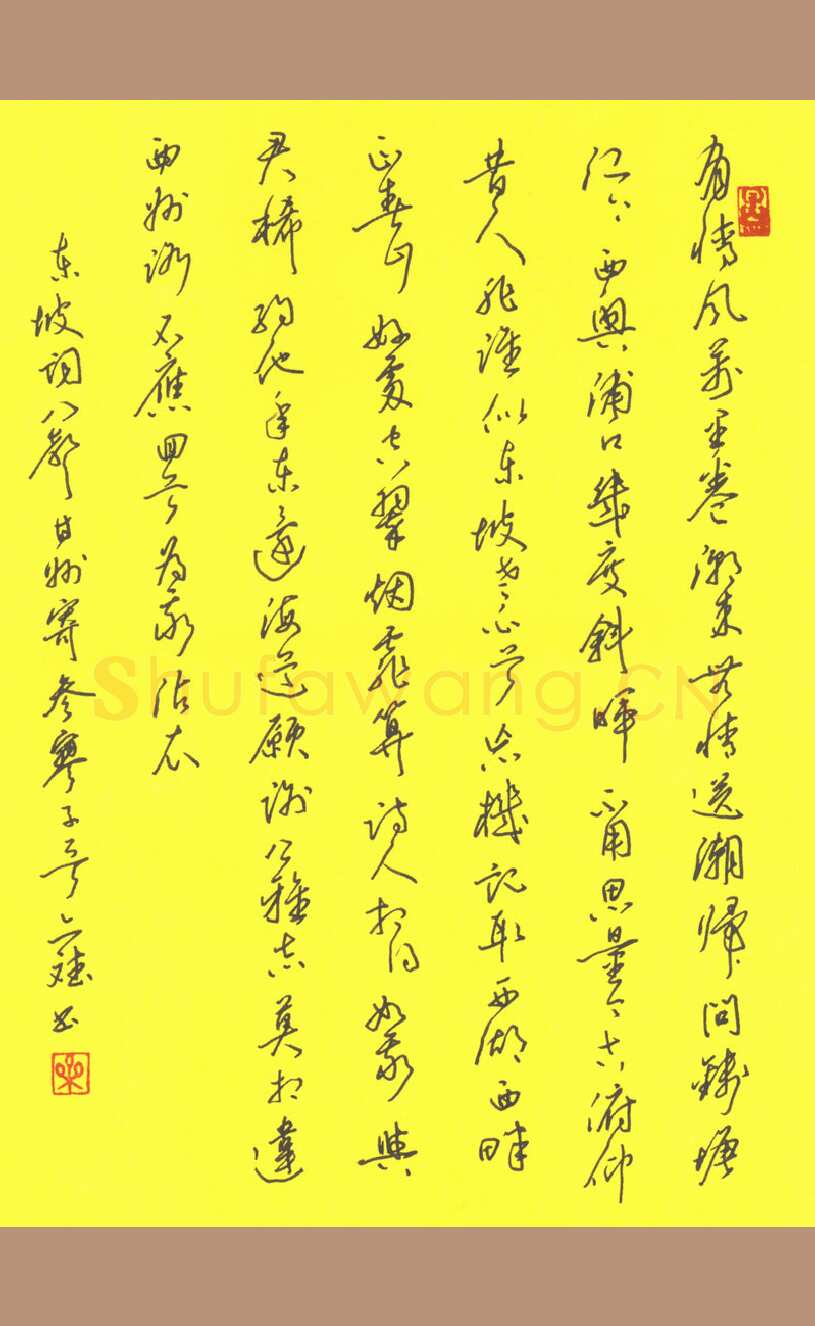 有情风万里卷潮来无情送潮归问钱塘
江上西兴浦口几度斜晖不用思量今古俯仰
昔人非谁似东坡老白首忘机记取西湖西畔
正春山好处空翠烟霏算诗人相得如我与
君稀约他年东还海道愿谢公雅志莫相违
西州路不应回首为我沾衣
东坡词八声甘州寄参寥子
Shufawang.CN